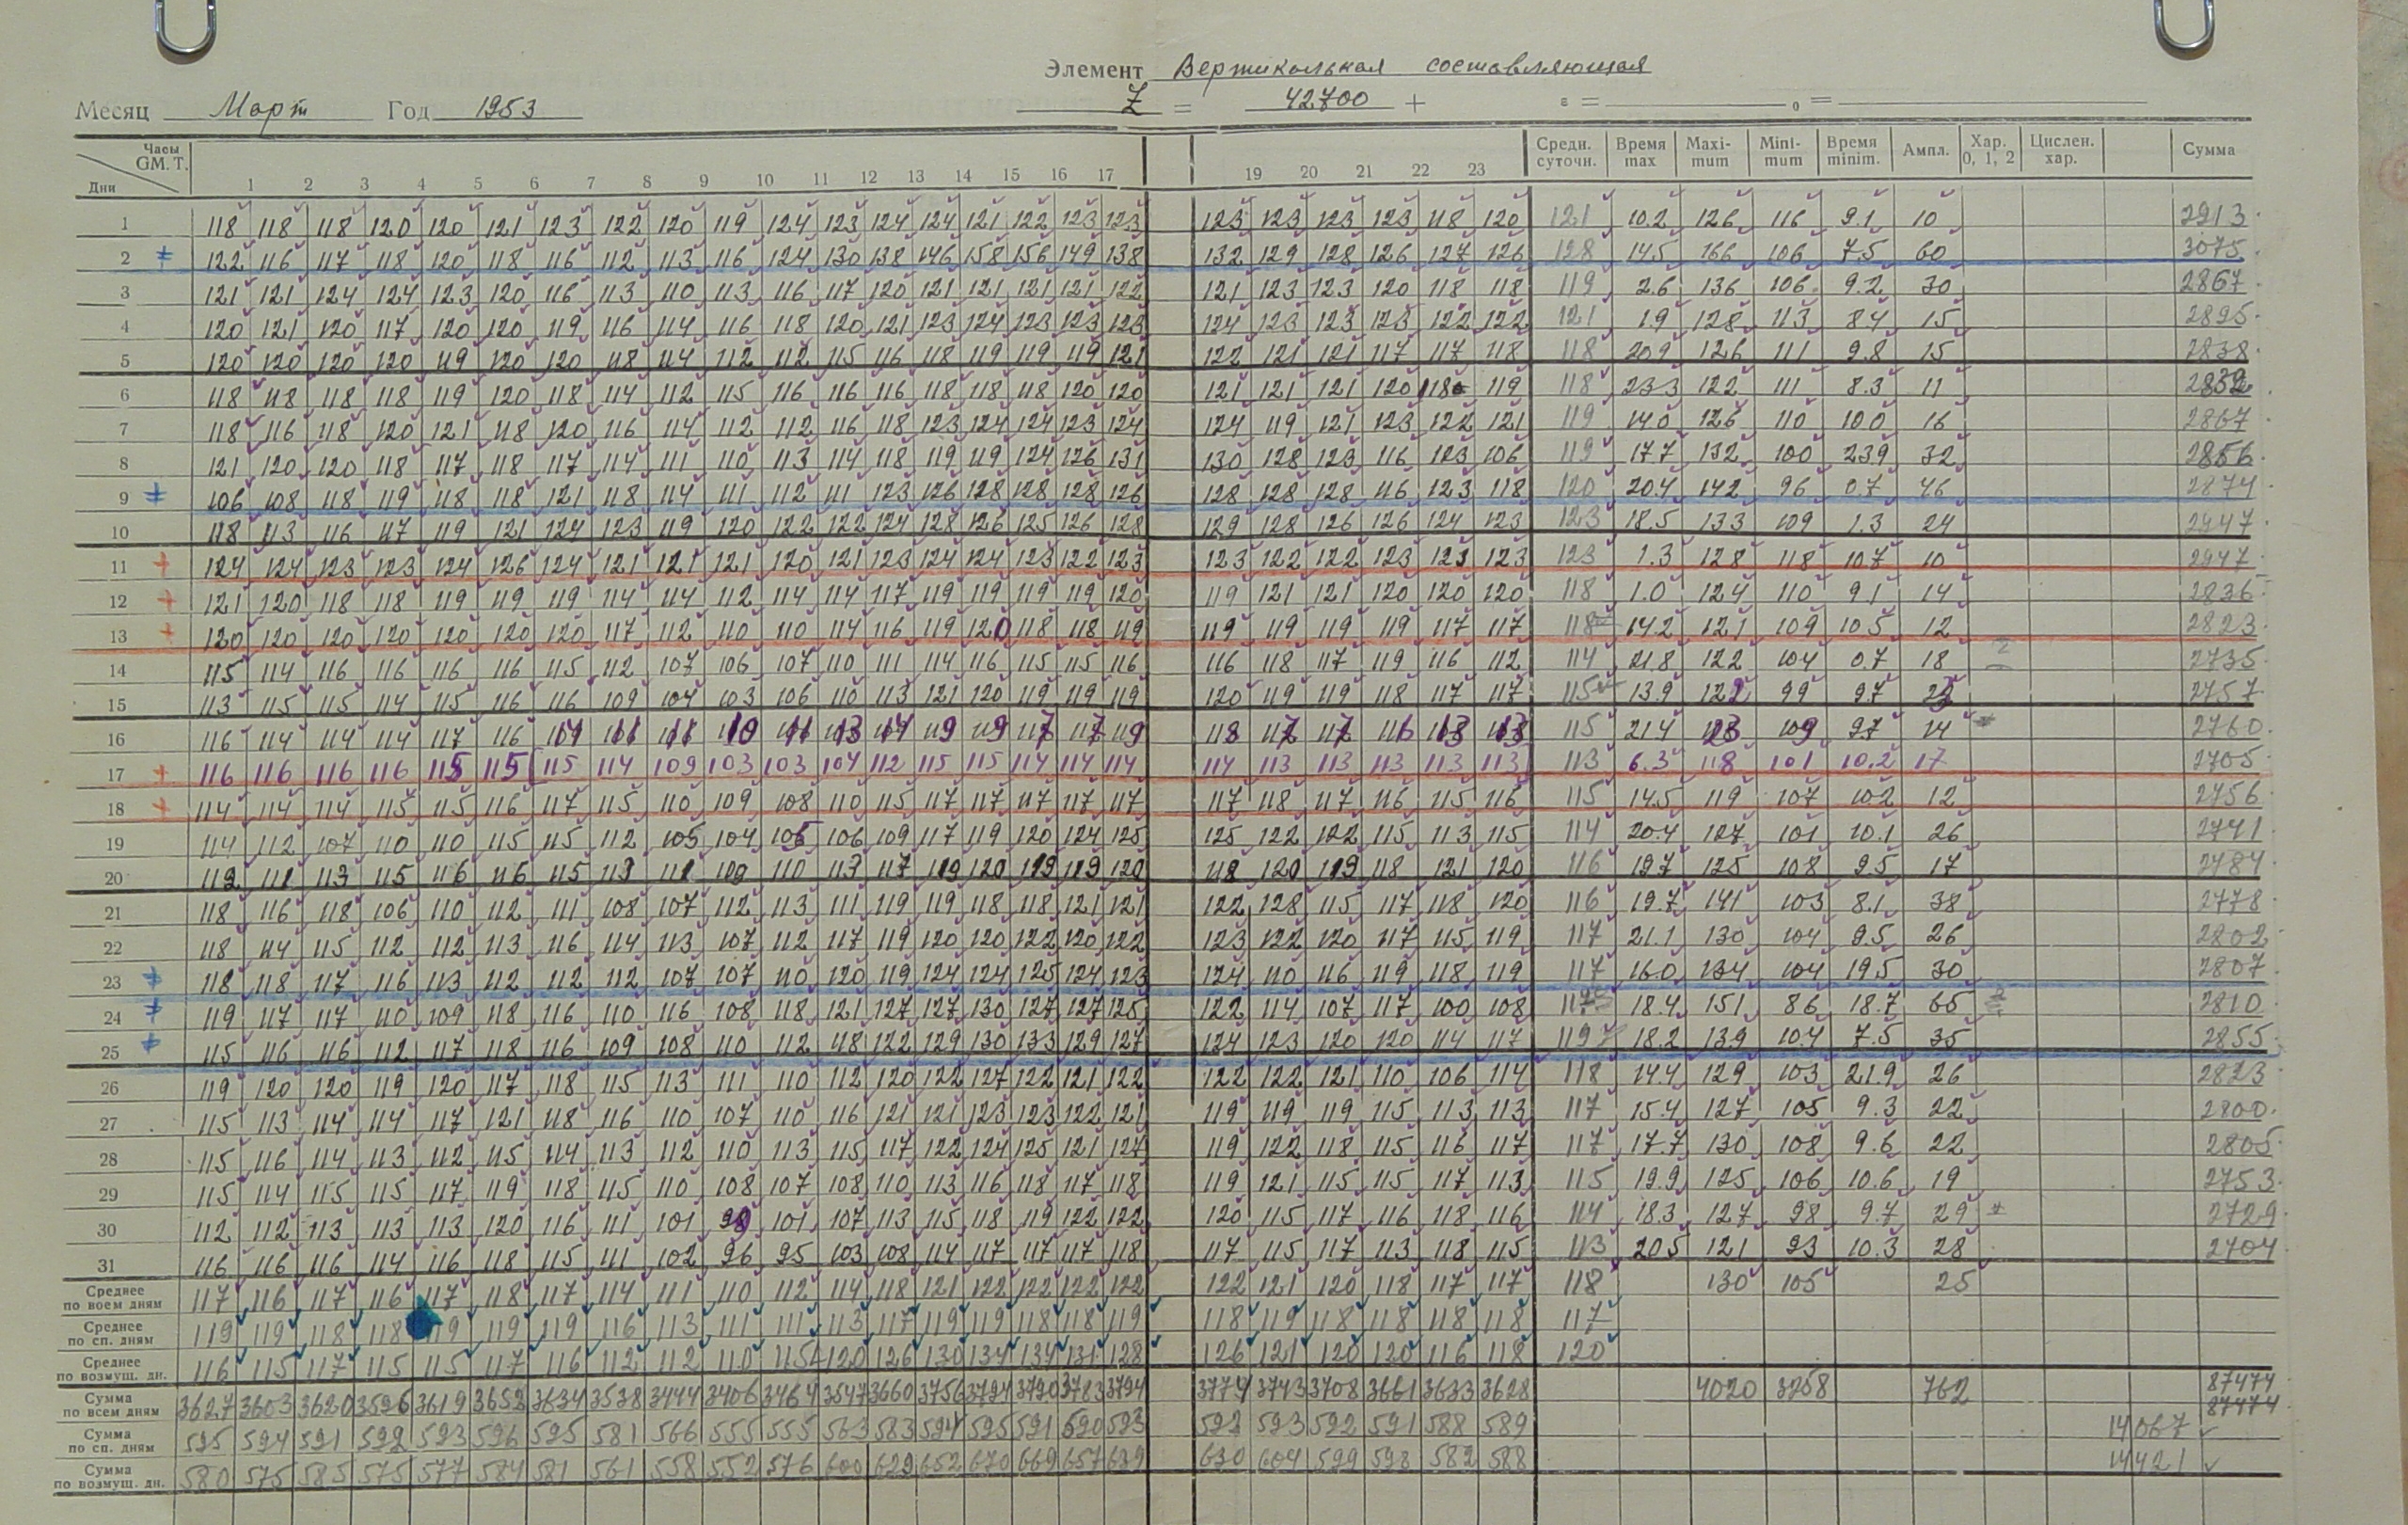 Элемент Вертикальная составляющая
Месяц Март Год 1953 Z = 42700 + ε = 0 =
Часы GM. T. Дни 1 2 3 4 5 6 7 8 9 10 11 12 13 14 15 16 17 19 20 21 22 23 Средн. суточн. Время max Maxi-mum Mini-mum Время minim. Ампл. Хар. 0, 1, 2 Цислен. хар. Сумма
1 118 118 118 120 120 121 123 122 120 119 124 123 124 124 121 122 123 123 123 123 123 123 118 120 121 10.2 126 116 9.1 10 2913
2 122 116 117 118 120 118 116 112 113 116 124 130 138 146 158 156 149 138 132 129 128 126 127 126 128 14.5 166 106 7.5 60 3075
3 121 121 124 124 123 120 116 113 110 113 116 117 120 121 121 121 121 122 121 123 123 120 118 118 119 2.6 136 106 9.2 30 2867
4 120 121 120 117 120 120 119 116 114 116 118 120 121 123 124 123 123 123 124 123 123 123 122 122 121 1.9 128 113 8.4 15 2895
5 120 120 120 120 119 120 120 118 114 112 112 115 116 118 119 119 119 121 122 121 121 117 117 118 118 20.9 126 111 9.8 15 2838
6 118 118 118 118 119 120 118 114 112 115 116 116 116 118 118 118 120 120 121 121 121 120 118 119 118 23.3 122 111 8.3 11
7 118 116 118 120 121 118 120 116 114 112 112 116 118 123 124 124 123 124 124 119 121 123 122 121 119 14.0 126 110 10.0 16 2867
8 121 120 120 118 117 118 117 114 111 110 113 114 118 119 119 124 126 131 130 128 123 116 123 106 119 17.7 132 100 23.9 32 2856
9 106 108 118 119 118 118 121 118 114 111 112 111 123 126 128 128 128 126 128 128 128 116 123 118 120 20.4 142 96 0.7 46 2874
10 118 113 116 117 119 121 124 123 119 120 122 122 124 128 126 125 126 128 129 128 126 126 124 123 123 18.5 133 109 1.3 24 2947
11 124 124 123 123 124 126 124 121 121 121 120 121 123 124 124 123 122 123 123 122 122 123 121 123 123 1.3 128 118 10.7 10 2947
12 121 120 118 118 119 119 119 114 114 112 114 114 117 119 119 119 119 120 119 121 121 120 120 120 118 1.0 124 110 9.1 14 2836
13 120 120 120 120 120 120 120 117 112 110 110 114 116 119 120 118 118 119 119 119 119 119 117 117 118 14.2 121 109 10.5 12 2823
14 115 114 116 116 116 116 115 112 107 106 107 110 111 114 116 115 115 116 116 118 117 119 116 112 114 21.8 122 104 0.7 18 2735
15 113 115 115 114 115 116 116 109 104 103 106 110 113 121 120 119 119 119 120 119 119 118 117 117 115 13.9 122 99 9.7 23 2757
16 116 114 114 114 117 116 114 111 111 110 111 113 114 119 119 117 117 119 118 117 117 116 113 113 115 21.4 123 109 9.7 14 2760
17 116 116 116 116 115 115 115 114 109 103 103 104 112 115 115 114 114 114 114 113 113 113 113 113 113 6.3 118 101 10.2 17 2705
18 114 114 114 115 115 116 117 115 110 109 108 110 115 117 117 117 117 117 117 118 117 116 115 116 115 14.5 119 107 10.2 12 2756
19 114 112 107 110 110 115 115 112 105 104 105 106 109 117 119 120 124 125 125 122 122 115 113 115 114 20.4 127 101 10.1 26 2741
20 112 111 113 115 116 116 115 113 111 109 110 113 117 119 120 119 119 120 118 120 119 118 121 120 116 19.7 125 108 9.5 17 2784
21 118 116 118 106 110 112 111 108 107 112 113 111 119 119 118 118 121 121 122 128 115 117 118 120 116 19.7 141 103 8.1 38 2778
22 118 114 115 112 112 113 116 114 113 107 112 117 119 120 120 122 120 122 123 122 120 117 115 119 117 21.1 130 104 9.5 26 2802
23 118 118 117 116 113 112 112 112 107 107 110 120 119 124 124 125 124 123 124 110 116 119 118 119 117 16.0 134 104 19.5 30 2807
24 119 117 117 110 109 118 116 110 116 108 118 121 127 127 130 127 127 125 122 114 107 117 100 108 117 18.4 151 86 18.7 65 2810
25 115 116 116 112 117 118 116 109 108 110 112 118 122 129 130 133 129 127 124 123 120 120 114 117 119 18.2 139 104 7.5 35 2855
26 119 120 120 119 120 117 118 115 113 111 110 112 120 122 127 122 121 122 122 122 121 110 106 114 118 14.4 129 103 21.9 26 2823
27 115 113 114 114 117 121 118 116 110 107 110 116 121 121 123 123 122 121 119 119 119 115 113 113 117 15.4 127 105 9.3 22 2800
28 115 116 114 113 112 115 114 113 112 110 113 115 117 122 124 125 121 127 119 122 118 115 116 117 117 17.7 130 108 9.6 22 2805
29 115 114 115 115 117 119 118 115 110 108 107 108 110 113 116 118 117 118 119 121 115 115 117 113 115 19.9 125 106 10.6 19 2753
30 112 112 113 113 113 120 116 111 101 99 101 107 113 115 118 119 122 122 120 115 117 116 118 116 114 18.3 127 98 9.7 29 2729
31 116 116 116 114 116 118 115 111 102 96 95 103 108 114 117 117 117 118 117 115 117 113 118 115 113 20.5 121 93 10.3 28 2704
Среднее по всем дням 117 116 117 116 117 118 117 114 111 110 112 114 118 121 122 122 122 122 122 121 120 118 117 117 118 130 105 25
Среднее по сп. дням 119 119 118 118 119 119 119 116 113 111 111 113 117 119 119 118 118 119 118 119 118 118 118 118 117
Среднее по возмущ. дн. 116 115 117 115 115 117 116 112 112 110 115 120 126 130 134 134 131 128 126 121 120 120 116 118 120
Сумма по всем дням 3627 3603 3620 3596 3619 3652 3634 3538 3444 3406 3464 3547 3660 3756 3794 3790 3783 3794 3774 3743 3708 3661 3633 3628 4020 3258 762 87474
87474
Сумма по сп. дням 595 594 591 592 593 596 595 581 566 555 555 563 583 594 595 591 590 593 592 593 592 591 588 589 14067
Сумма по возмущ. дн. 580 575 585 575 577 584 581 561 558 552 576 600 629 652 670 669 657 639 630 604 599 598 582 588 14421